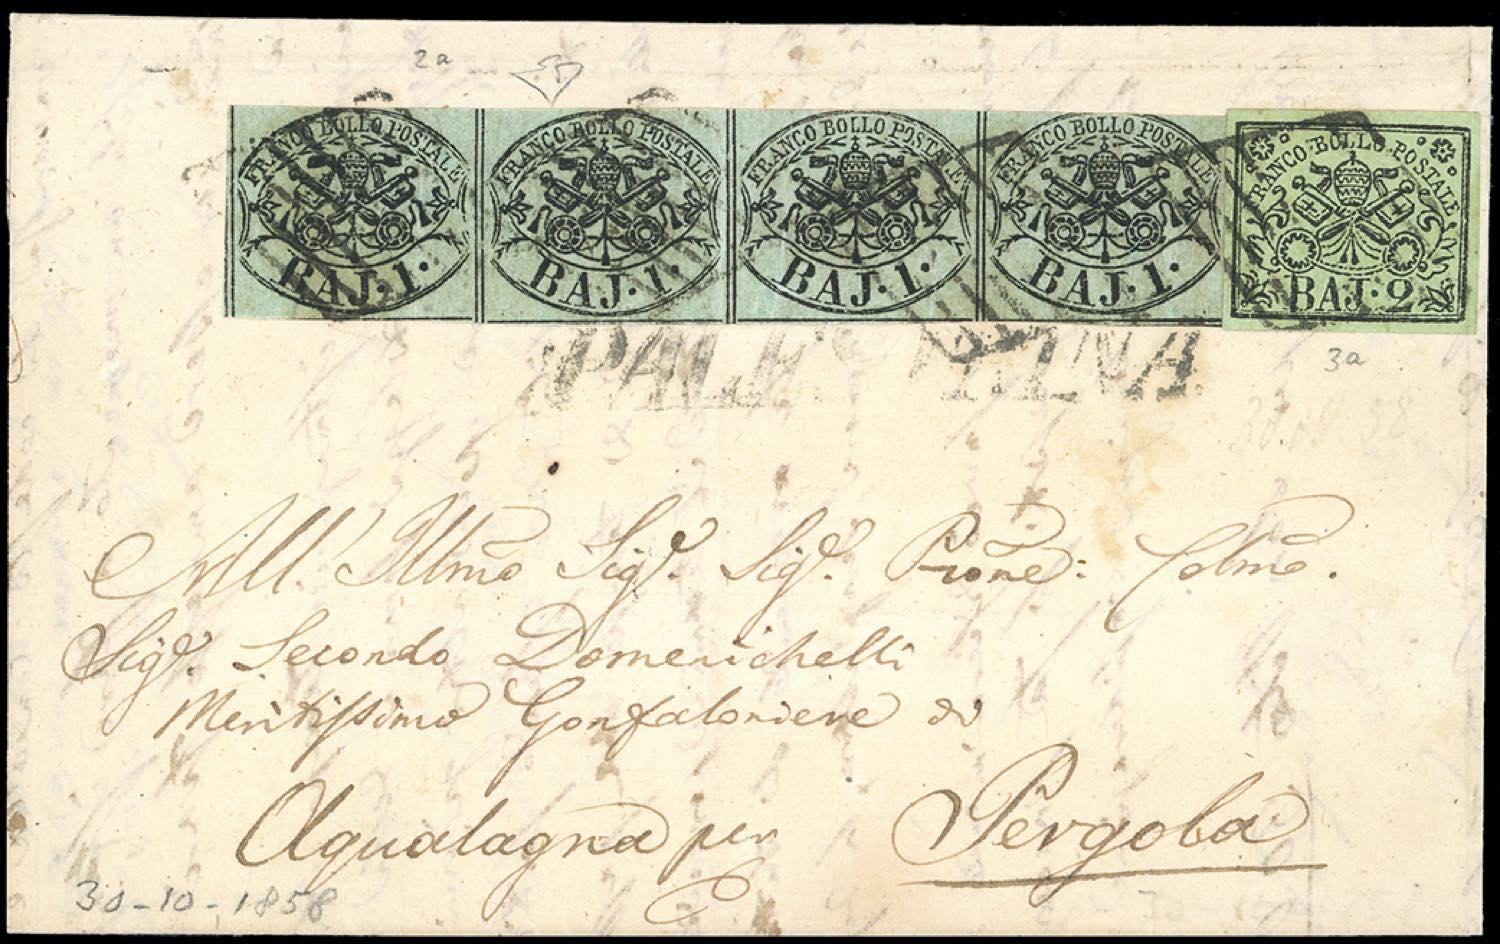 2a
FRANCO BOLLO POSTALE FRANCO BOLLO POSTALE FRANCO BOLLO POSTALE FRANCO BOLLO POSTALE FRANCO BOLLO POSTALE
BAJ. 1. BAJ. 1. BAJ. 1. BAJ. 1. BAJ. 2
3a
All' Illmo Sigr. Sigr. Prone: Colmo.
Sigr. Secondo Domenichelli
Meritissimo Gonfaloniere di
Aqualagna per Pergola
30-10-1858